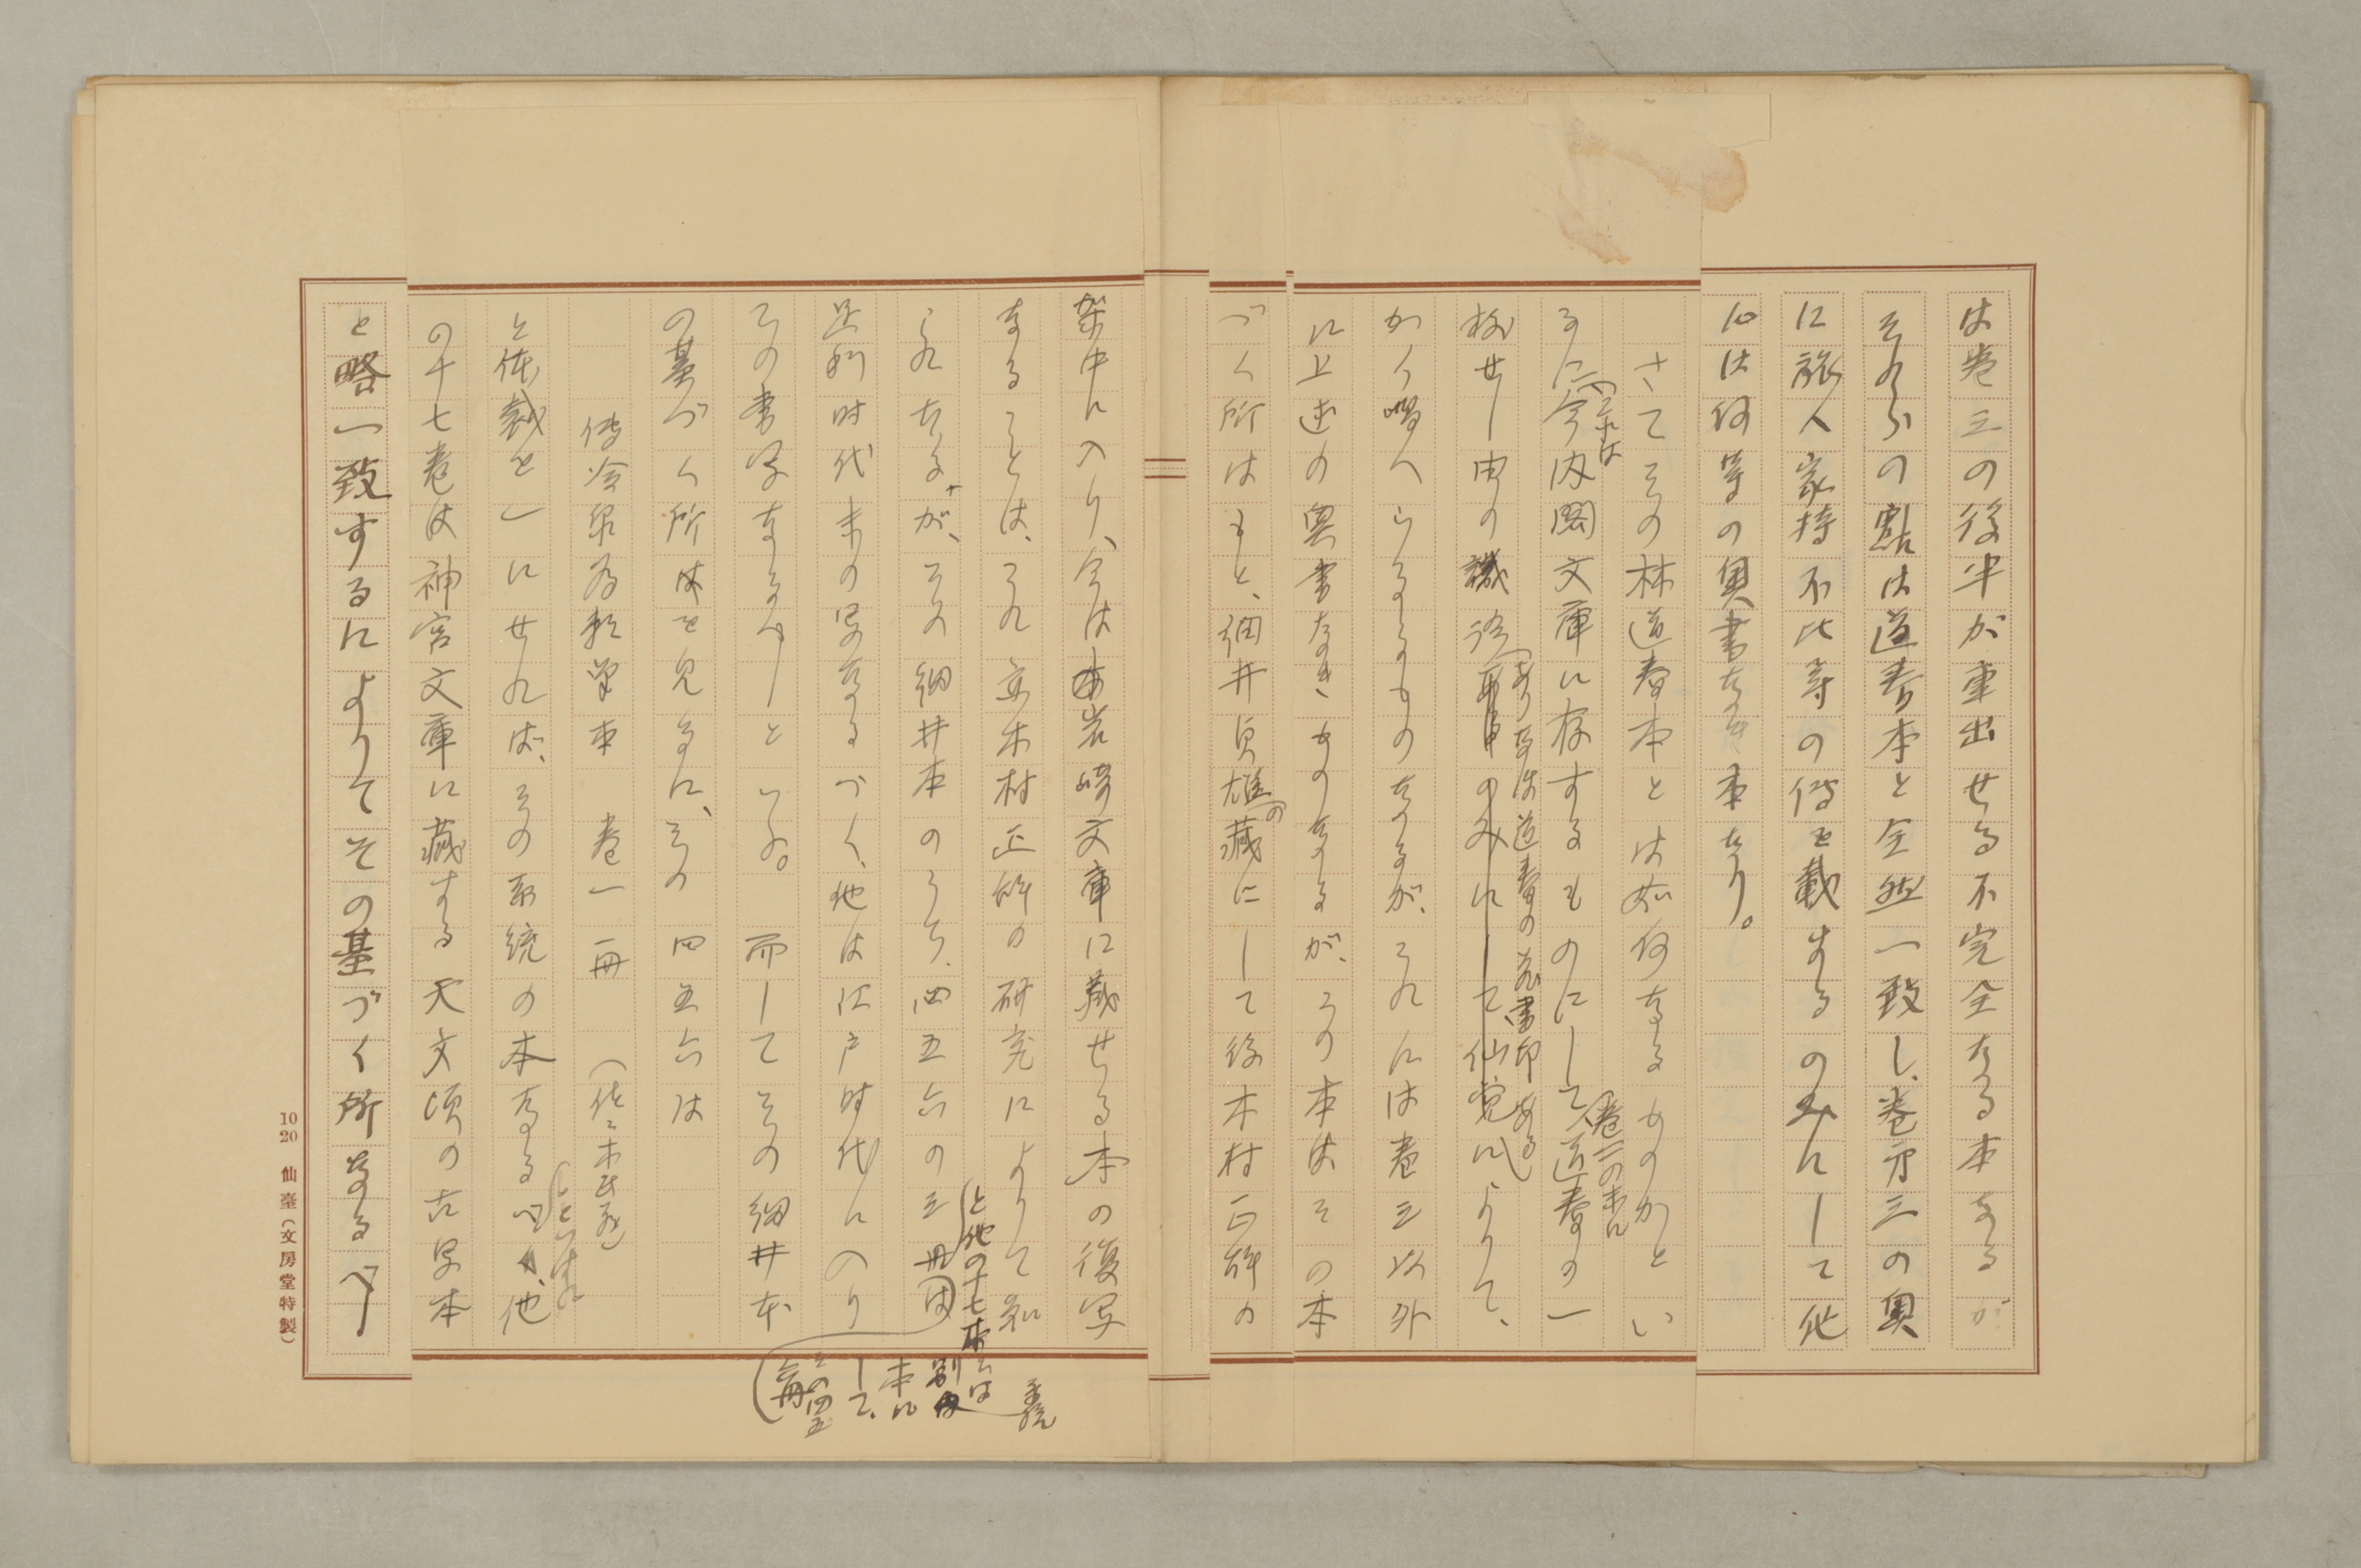 は卷三の後半が重出せる不完全なる本なるが
それらの點は道春本と全然一致し、卷第三の奥
に旅人家持不比等の傳を載するのみにして他
には何等の奥書なき本なり。
さてその林道春本とは如何なるものかとい
ふに今(これは)内閣文庫に存するものにして、(卷二の末に)道春の一
校せし由の識語(あり、なほ道春の藏書印ある)によりて、
かく唱へらるゝものなるが、これには卷三以外
に上述の奥書なきものなるが、この本はその本
づく所はもと、細井貞雄の藏にして後木村正辞の
架中に入り、今は岩崎文庫に藏せる本の複写
なることは、これ亦木村正辞の研究によりて知
られたるが、その細井本のうち、四五六の三冊は
足利時代末の写なるべく、他は江戸時代に入り
ての書写なるべしといふ。而してその細井本
の基づく所はを見るに、その四五六は
傳冷泉爲秋筆本 卷一 一冊
と体裁を一にせれば、その系統の本なるべく、他
の十七卷は神宮文庫に藏する天文頃の古写本
と略一致するによりてその基づく所なるべし
と他の十七本とは
別
本に
して、
その四五
六冊
10 20 仙臺(文房堂特製)